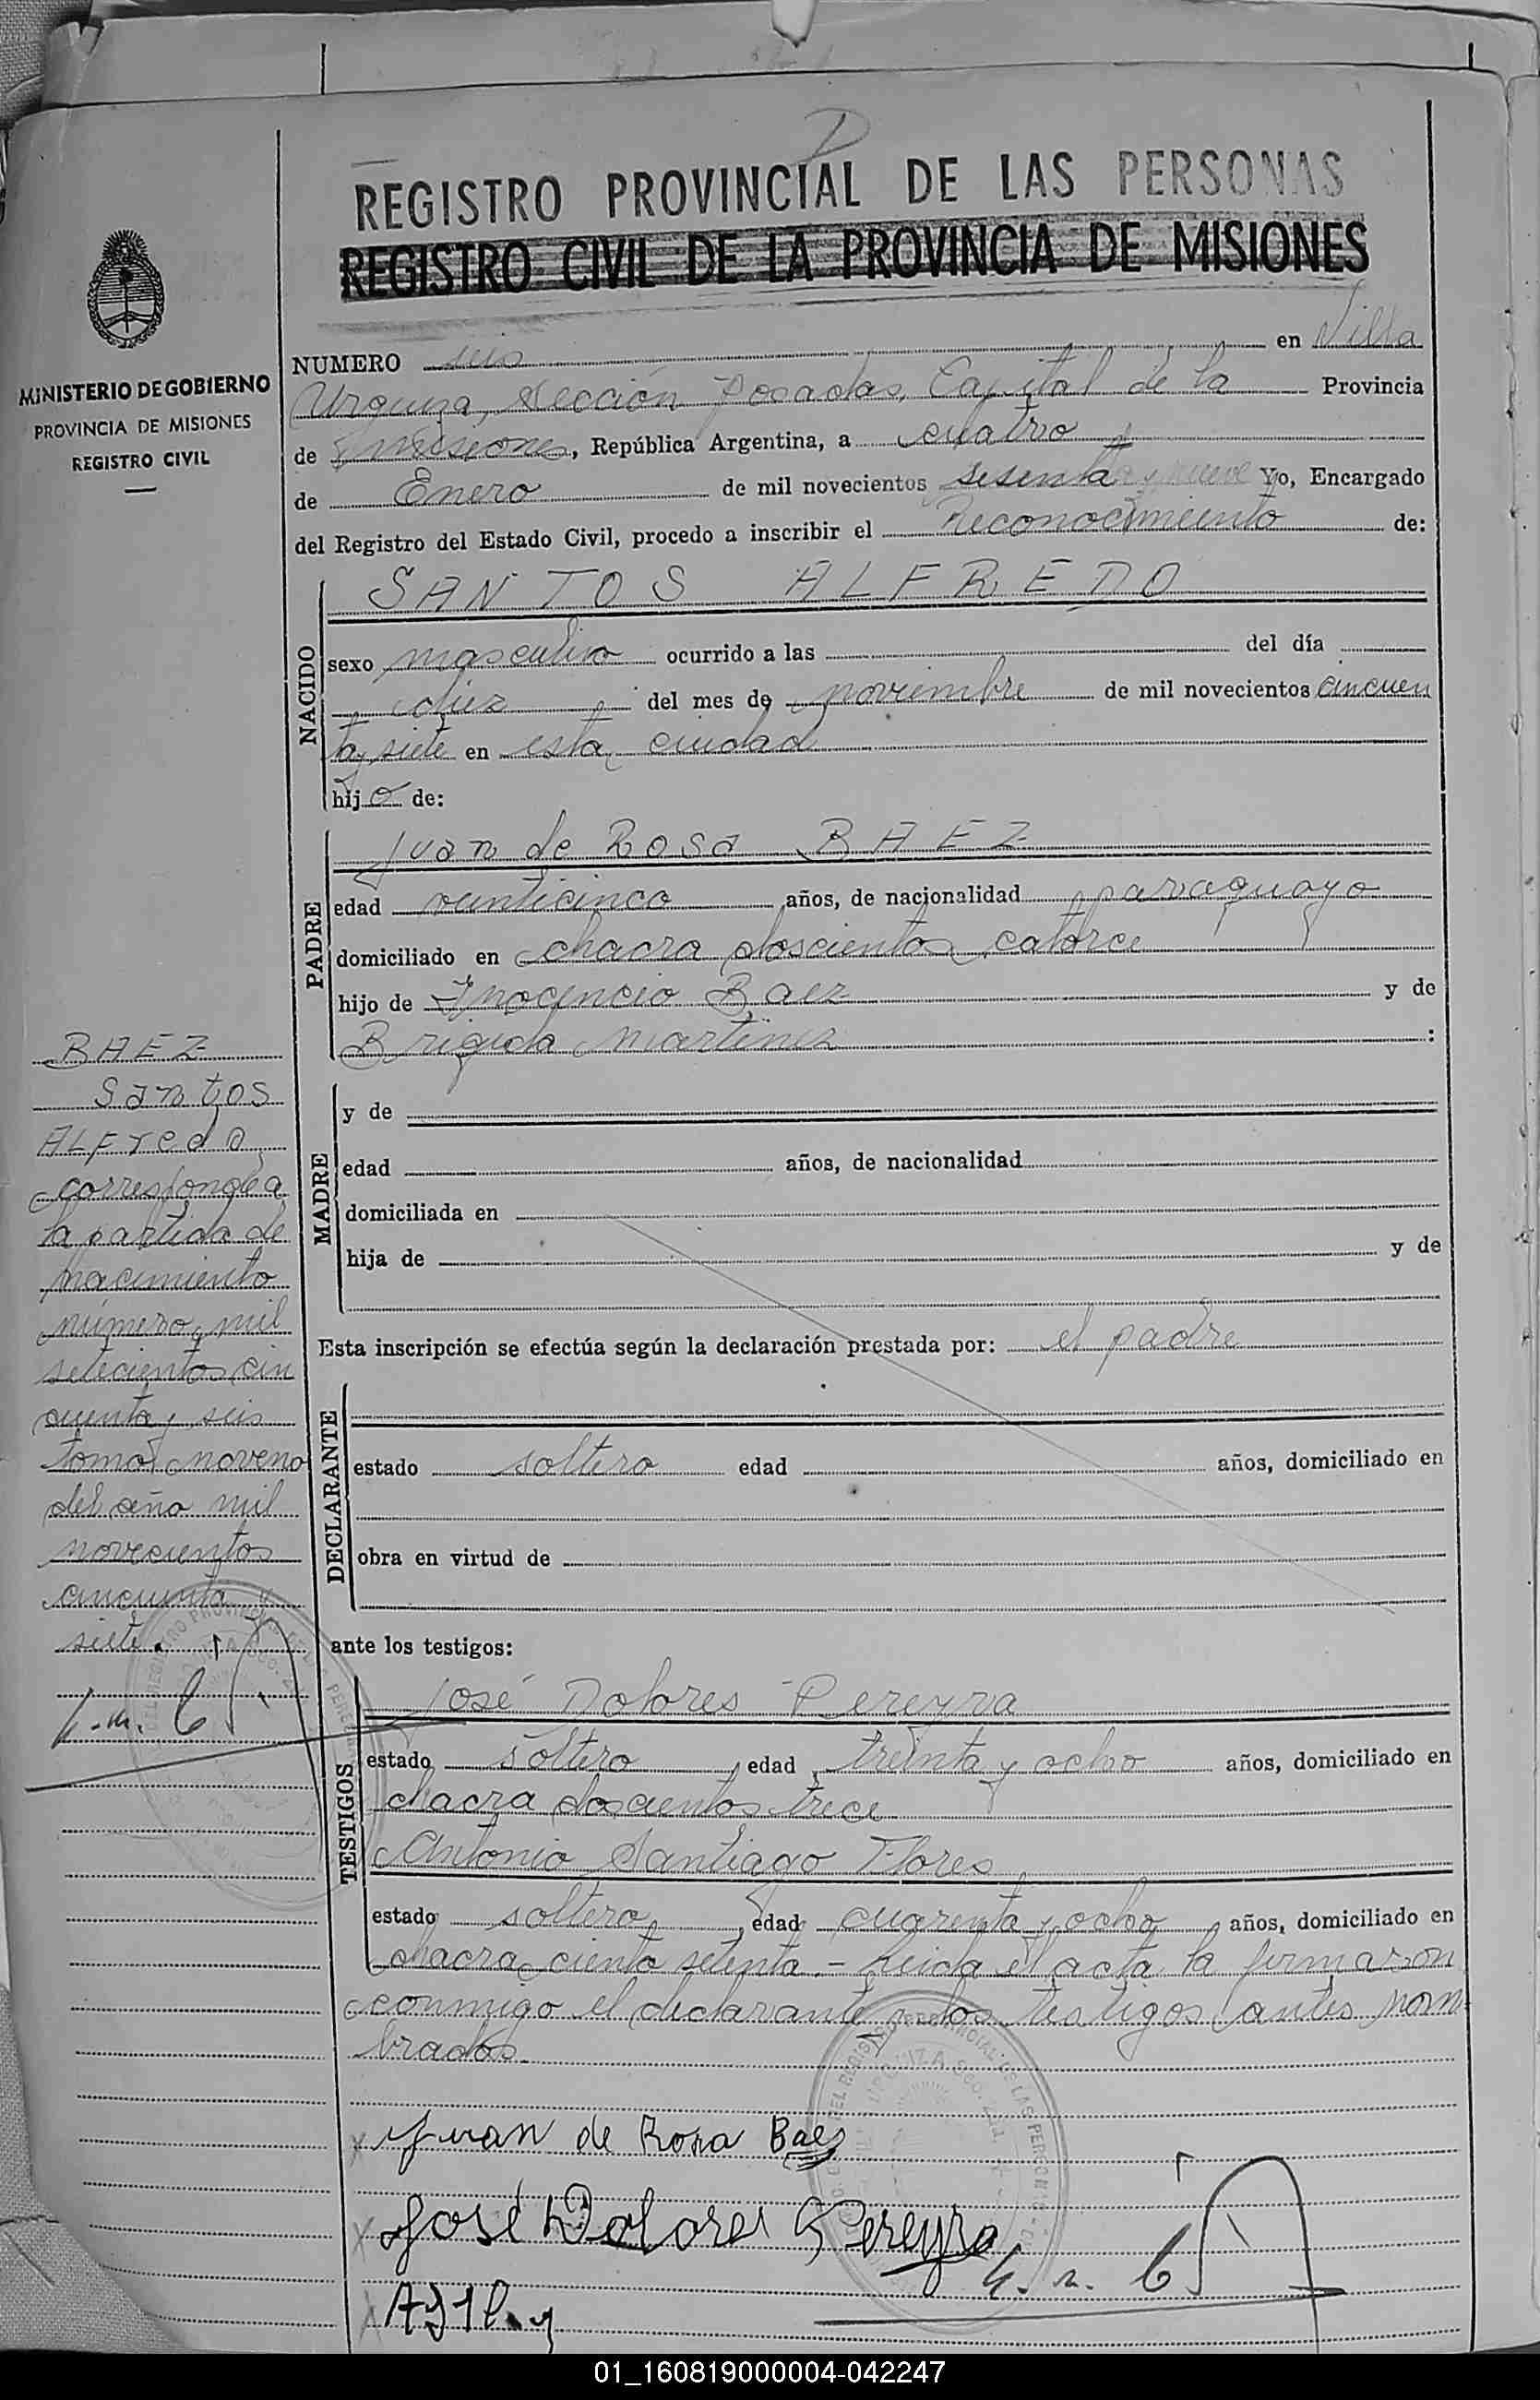 REGISTRO PROVINCIAL DE LAS PERSONAS
REGISTRO CIVIL DE LA PROVINCIA DE MISIONES
MINISTERIO DE GOBIERNO
PROVINCIA DE MISIONES
REGISTRO CIVIL
NUMERO seis en Villa
Urquiza, Sección Posadas, Capital de la Provincia
de Misiones, República Argentina, a cuatro
de Enero de mil novecientos sesenta y nueve Yo, Encargado
del Registro del Estado Civil, procedo a inscribir el Reconocimiento de:
NACIDO
SANTOS ALFREDO
sexo masculino ocurrido a las del día
diez del mes de noviembre de mil novecientos cincuen
ta y siete en esta ciudad
hijo de:
PADRE
Juan de Rosa BAEZ
edad veinticinco años, de nacionalidad paraguayo
domiciliado en chacra doscientos catorce
hijo de Inocencio Baez y de
Brigida Martinez :
MADRE
y de
edad años, de nacionalidad
domiciliada en
hija de y de
Esta inscripción se efectúa según la declaración prestada por: el padre
DECLARANTE
estado soltero edad años, domiciliado en
obra en virtud de
ante los testigos:
TESTIGOS
José Dolores Pereyra
estado soltero edad treinta y ocho años, domiciliado en
chacra doscientos trece
Antonio Santiago Flores
estado soltero, edad cuarenta y ocho años, domiciliado en
chacra ciento setenta.- Leida el acta la firmaron
conmigo el declarante y los testigos antes nom
brados.
BAEZ
Santos
ALFredo
corresponde a
la partida de
nacimiento
número mil
setecientos cin
cuenta y seis
tomo noveno
del año mil
novecientos
cincuenta y
siete.
Juan de Rosa Baez
José Dolores Pereyra
01_160819000004-042247